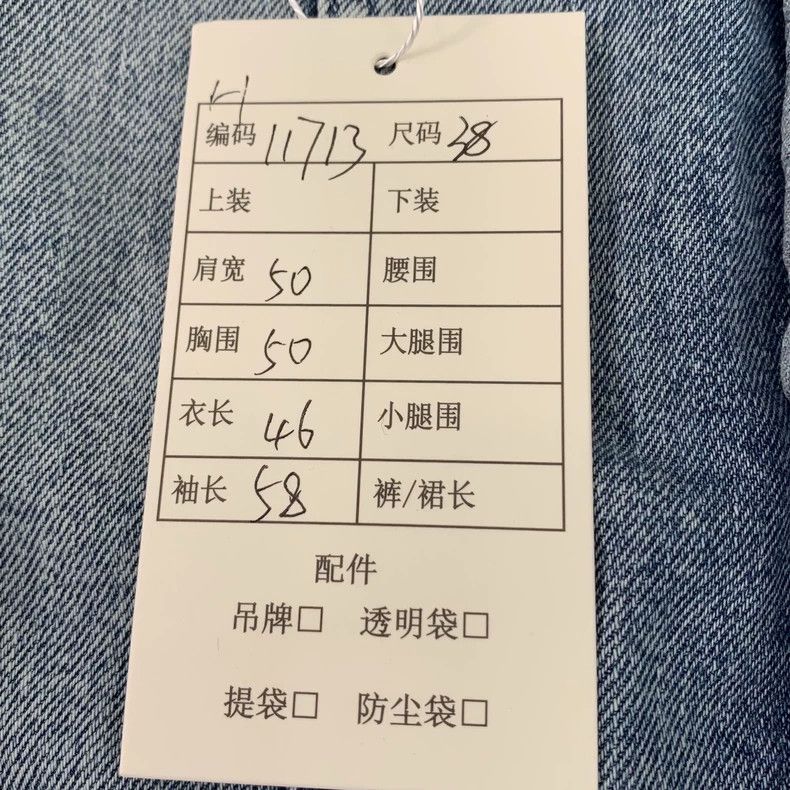 H
编码 11713 尺码 38
上装 下装
肩宽 50 腰围
胸围 50 大腿围
衣长 46 小腿围
袖长 58 裤/裙长
配件
吊牌□ 透明袋□
提袋□ 防尘袋□